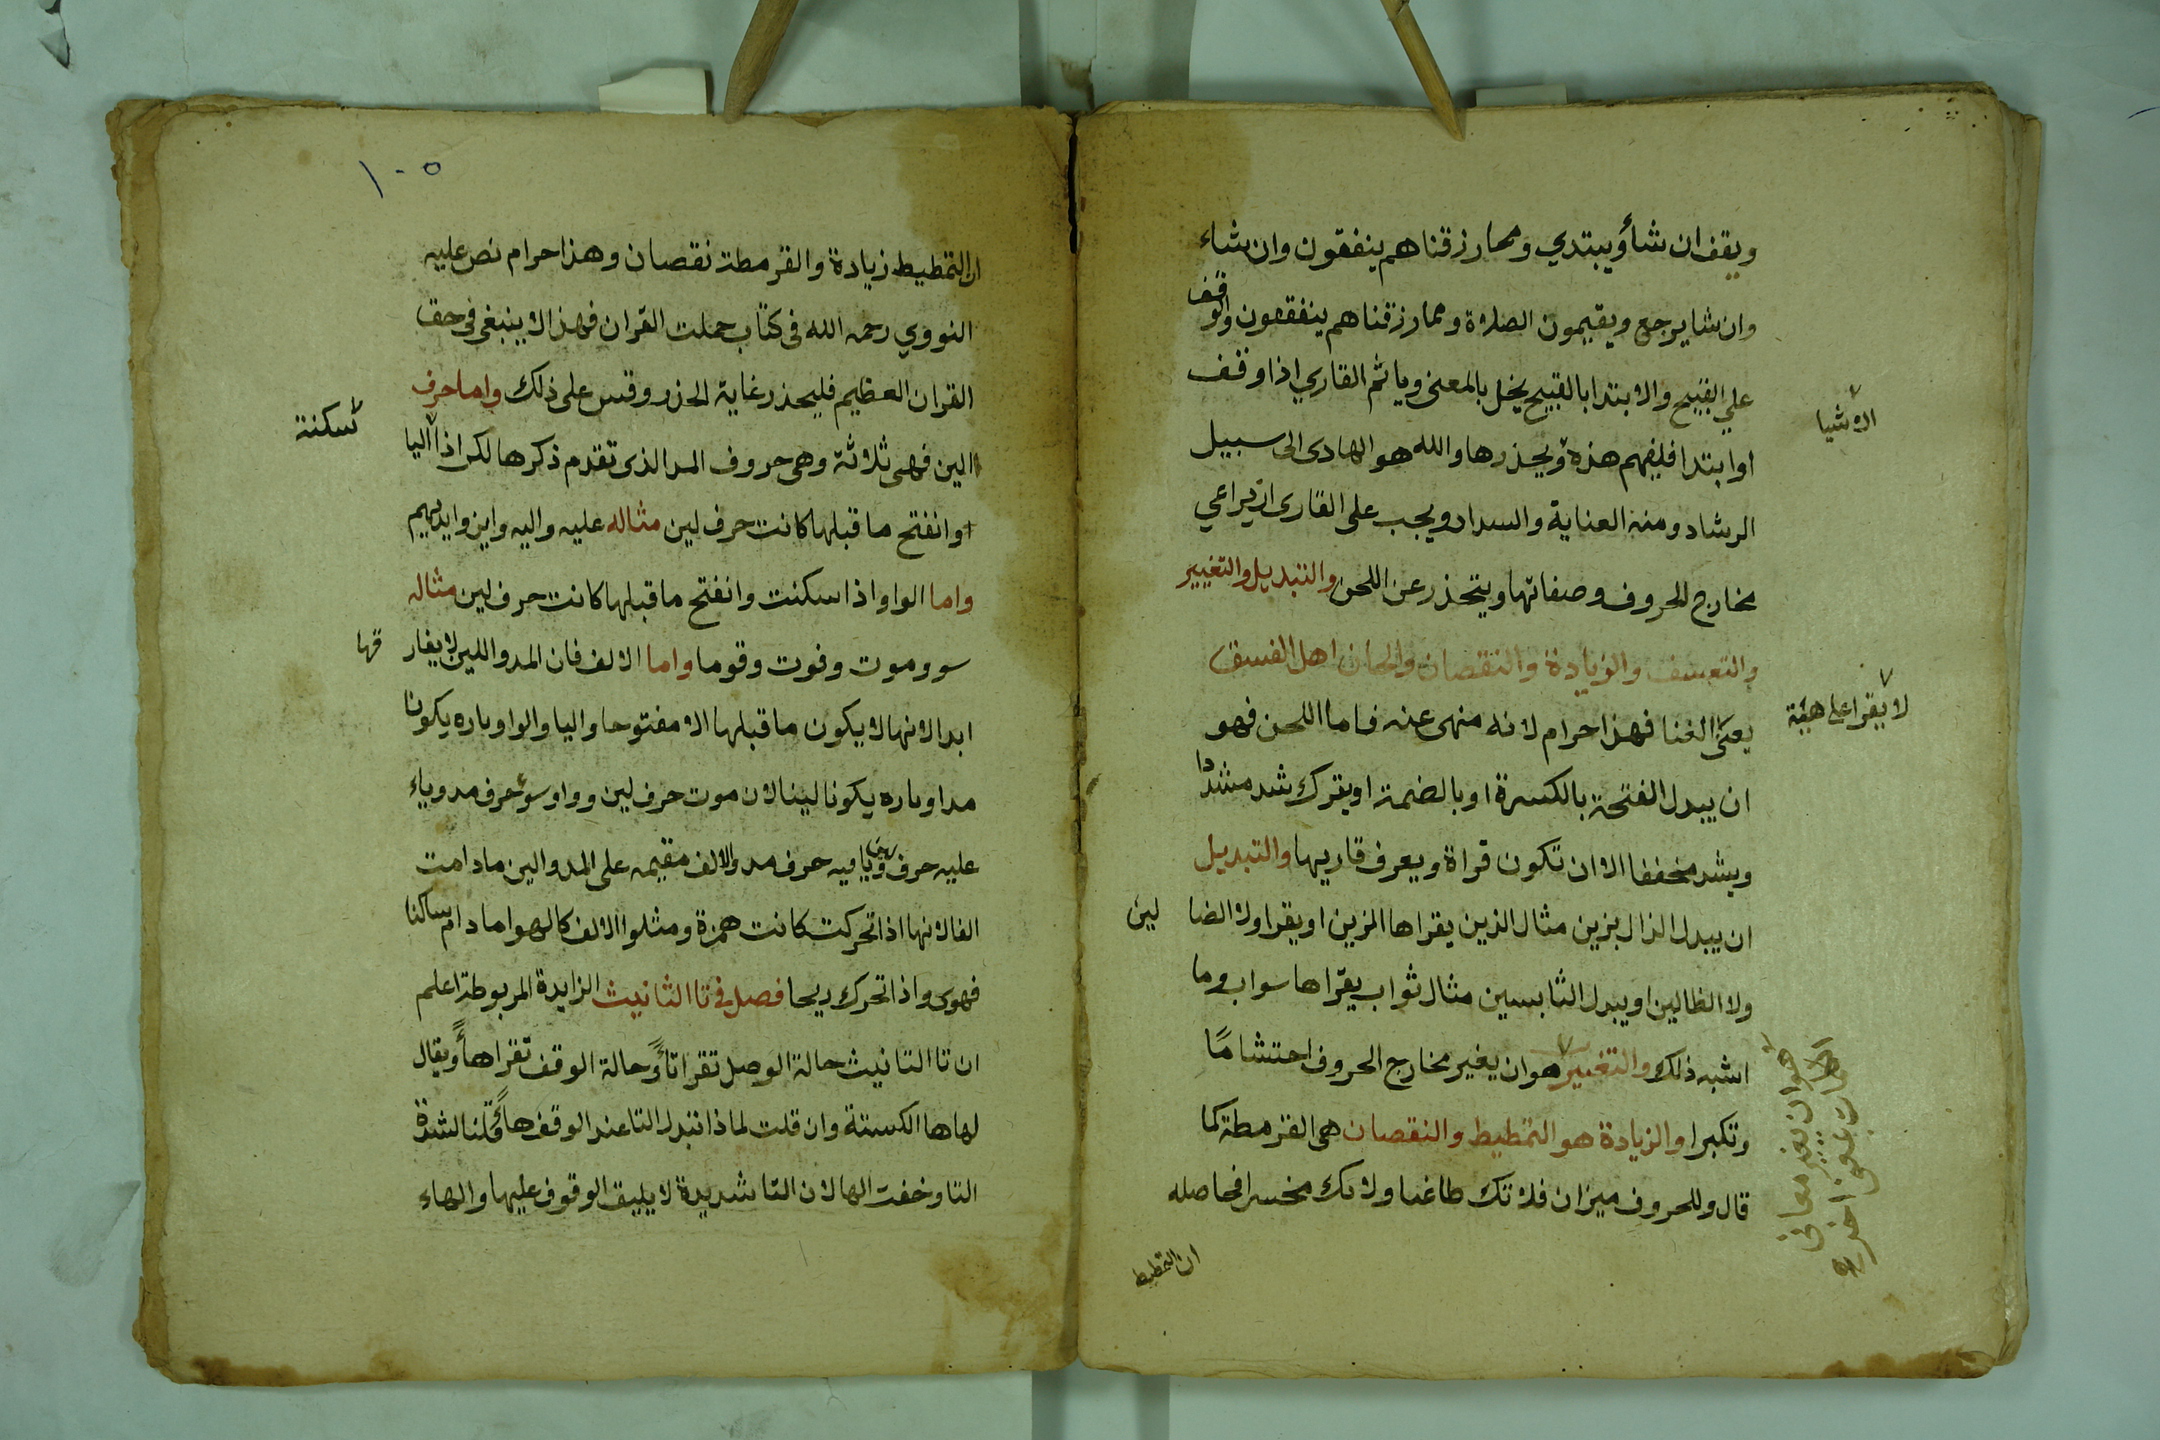 ويقف ان شأ ويبتدي ومما رزقناهم ينفقون وان شاء
وان شا يرجع ويقيمون الصلاة ومما رزقناهم ينفقون والوقف
علي القبيح والابتدا بالقبيح يخل بالمعنى وياثم القاري اذا وقف
او ابتدا فليفهم هذه ويحذرها والله هو الهادى الى سبيل
الاشيا
الرشاد ومنه العناية والسداد ويجب على القارى ان يراعي
مخارج الحروف وصفاتها ويتحذر عن اللحن والتبديل والتغيير
والتعسف والزيادة والنقصان والحان اهل الفسق
لا يقرا على هيئة
يعنى الغنا فهذا حرام لانه منهى عنه فاما اللحن فهو
ان يبدل الفتحة بالكسرة او بالضمة او يترك شد مشددا
ويشد مخففا الا ان تكون قراة ويعرف قاريها والتبديل
ان يبدل الذال بزين مثال الذين يقراها الزين او يقرا ولا الضا لين
ولا الظالين او يبدل الثا بسين مثال ثواب يقراها سواب وما
اشبه ذلك والتغيير هو ان يغير مخارج الحروف احتشاما
هو ان يغير معانى
وتكبرا والزيادة هو التمطيط والنقصان هى القرمطة كما
قال وللحروف ميزان فلا تك طاغيا ولا تك مخسرا فحاصله
ان التمطيط
١٠٥
ان التمطيط زيادة والقرمطة نقصان وهذا حرام نص عليه
النووي رحمه الله فى كتاب حملت القران فهذا لا ينبغى فى حق
القران العظيم فليحذر غاية الحذر وقس على ذلك واما حرف
الين فهى ثلاثة وهى حروف المد الذى تقدم ذكرها لكن اذا اليا
سكنة
وانفتح ما قبلها كانت حرف لين مثاله عليه واليه واين وايديهم
واما الواو اذا سكنت وانفتح ما قبلها كانت حرف لين مثاله
سو وموت وفوت وقوما واما الالف فان المد واللين لا يفار قها
ابدا لانها لا يكون ما قبلها الا مفتوحا واليا والواو باره يكونا
مدا وباره يكونا لينا لان موت حرف لين وواو سوء حرف مد وياء
عليه حرف لين ويا فيه حرف مد والالف مقيمه على المد والين مادامت
الفا لانها اذا تحركت كانت همزة ومثلوا الالف كالهوا مادام ساكنا
فهوى واذا تحرك ريحا فصل فى تا التانيث الزايدة المربوطة اعلم
ان تا التانيث حالة الوصل تقرا تاً وحالة الوقف تقرا هاً ويقال
لها ها الكستة وان قلت لماذا تبدل التا عند الوقف هاً قلنا لشدة
التا وخفت الها لان التا شديدة لا يليق الوقوف عليها والهاء